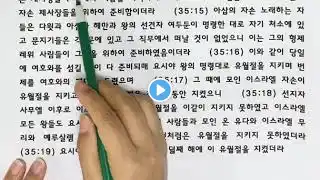 자손 제사장들을 위하여 준비함이더라 (35:15) 아삽의 자손 노래하는 자
들은 다윗과 아삽 해만과 왕의 선견자 여두둔이 명령한 대로 자기 처소에 있
고 문지기들은 문에 있고 그 직무에서 떠날 것이 없었으니 이는 그의 형제
레위 사람들이 그들을 위하여 준비하였음이더라 (35:16) 이와 같이 당일
에 여호와를 섬길 일이 다 준비되매 요시야 왕의 명령대로 유월절을 지키며 번
제를 여호와의 드렸으며 (35:17) 그 때에 모인 이스라엘 자손이
유월절을 지키고 동안 지켰으니 (35:18) 선지자
사무엘 이후로 이스 유월절을 이같이 지키지 못하였고 이스라엘
모든 왕들도 요시 사람들과 모인 온 유다와 이스라엘 무
리와 예루살렘 처럼은 유월절을 지키지 못하였더라
(35:19) 요시야 덟째 해에 이 유월절을 지켰더라